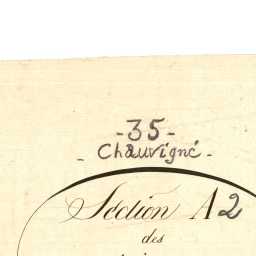 -35-
- Chauvigné -
Section A2
des